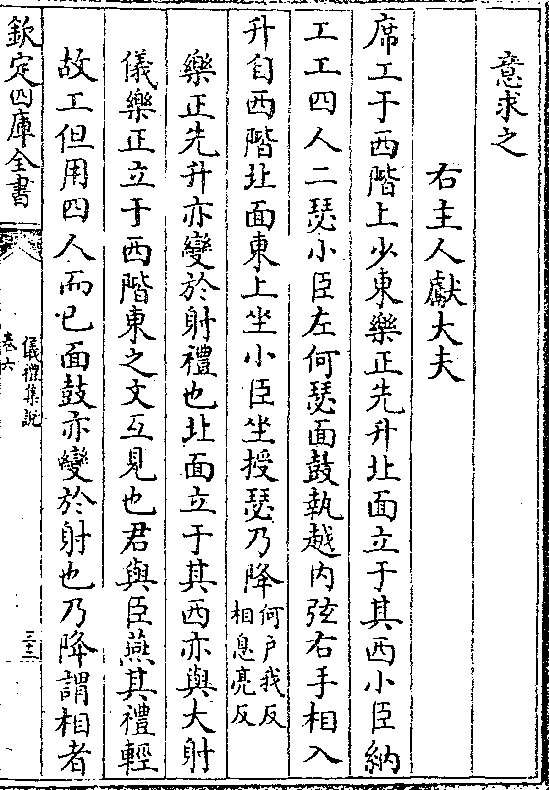 意求之
右主人獻大夫
席工于西階上少東樂正先升北面立于其西小臣納
工工四人二瑟小臣左何瑟面鼓執越内弦右手相入
升自西階北面東上坐小臣坐授瑟乃降何户我反相息亮反
樂正先升亦變於射禮也北面立于其西亦與大射
儀樂正立于西階東之文互見也君與臣燕其禮輕
故工但用四人而已面鼓亦變於射也乃降謂相者
欽定四庫全書
儀禮集說
卷六
三十三